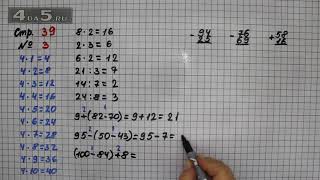 4DA5.RU
Стр. 39
№ 3
4·1=4
4·2=8
4·3=12
4·4=16
4·5=20
4·6=24
4·7=28
4·8=32
4·9=36
4·10=40
8·2=16
2·3=6
6·2=12
21:3=7
14:2=7
24:8=3
9+(82-70)=9+12=21
95-(50-43)=95-7=
(100-84)+8=